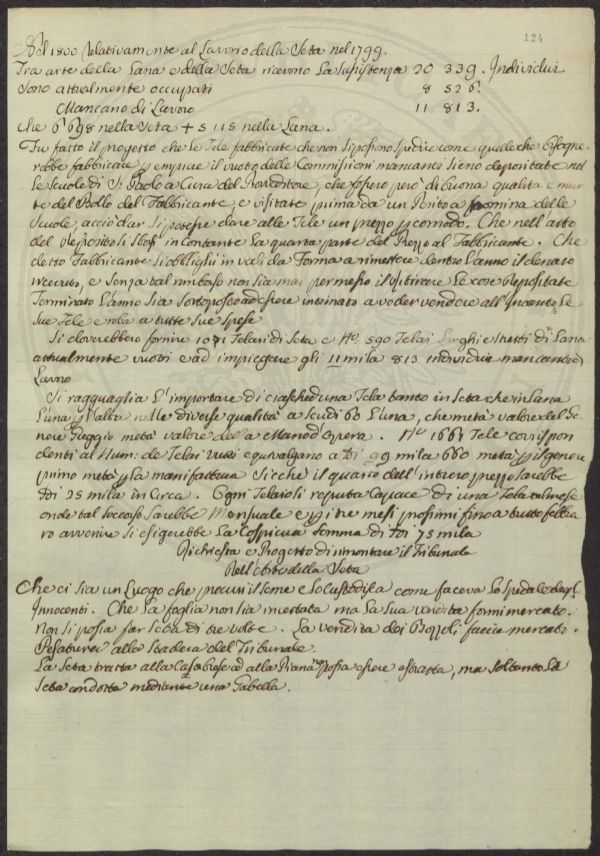 124
Nel 1800 Relativamente al Lavorio della Seta nel 1799.
Tra arte della Lana e della Seta ricevono la susistenza 20 339. Individui
Sono attualmente occupati 8 526.
Mancano di Lavoro 11 813.
Che 6698 nella Seta + 5115 nella Lana.
Fu fatto il progetto che le Tele fabbricate che non si possono spedire come quelle che bisogne
rebbe fabbricare p empire il vuoto delle Commissioni mancanti sieno depositate nel
le Scuole di S. Paolo a Cura del Provveditore, che fossero però di buona qualità e mun
te del Bollo del Fabbricante, e visitate prima da un Perito a nomina delle
Scuole, acciò dar si potesse dare alle Tele un prezzo p comodo. Che nell'atto
del Deposito si in Contante la quarta parte del Prezzo al Fabbricante. Che
detto Fabbricante si obblighi in valida Forma a rimettere dentro l'anno il denaro
ricevuto, e senza tal rimborso non sia mai permesso il ritirare le cose Depositate
Terminato l'anno sia sottoposto ad essere intimato a veder vendere all'Incanto le
sue Tele e roba a tutte sue spese
Si dovrebbero fornire 1071 Telari di Seta e No. 590 Telai Larghi e stretti di Lana
attualmente vuoti e ad impiegare gli 11 mila 813 individui mancanti di
Lavoro
Si ragguaglia l'importare di ciascheduna Tela tanto in Seta che in Lana
l'una p l'altra nelle diverse qualità a Scudi 60 l'una, che metà valore del Ge
nere Greggio metà valore della Mano d'Opera. No. 1661 Tele corrispon
denti al Num: de Telai vuoti equivalgano a 99 mila 660 metà p il genere
primo metà p la manifattura Sicchè il quarto dell'intiero prezzo sarebbe
di 25 mila in Circa. Ogni Telaio si reputa Capace di una Tela al mese
onde tal Soccorso Sarebbe Mensuale e p i tre mesi prossimi fino a tutto febbra
ro avvenire si esigerebbe la Cospicua Somma di 75 mila
Richiesta e Progetto di rimontare il Tribunale
Dell'Arte della Seta
Che ci sia un Luogo che procuri il seme e lo Custodisca come faceva lo Spedale degl'
Innocenti. Che la foglia non sia incettata ma la sua vendita formi mercato.
Non si possa far Seta di tre volte. La vendita dei Bozzoli faccia mercato.
Pesature alla Stadera del Tribunale.
La Seta tratta alla ed alla Piana non possa essere estratta, ma soltanto la
Seta condotta mediante una Gabella.